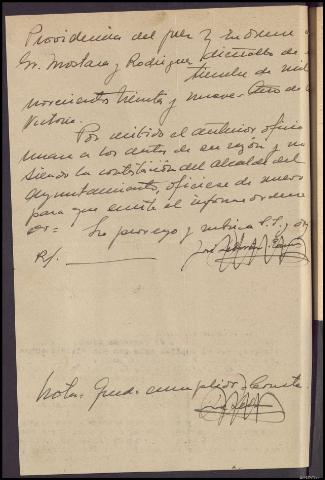 Providencia del juez
Sr. Mostaza y Rodriguez dieciocho de
tiembre de mil
novecientos treinta y nueve. Año de la
Victoria.
Por recibido el anterior oficio
unase a los autos de su razón y no
siendo la contestación del Alcalde del
Ayuntamiento, oficiese de nuevo
para que emita el informe
Lo proveyo y rubrica S.S., doy
R/.
Nota.- Queda cumplido. Consta.